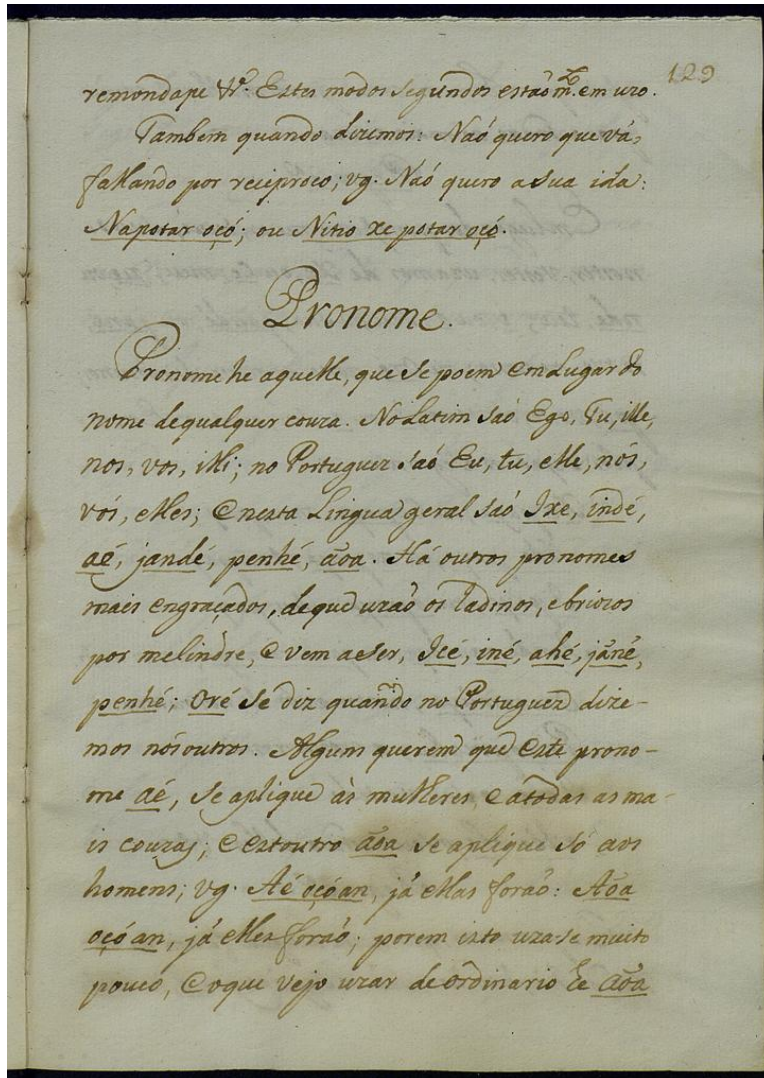 129
remondape &.ª Estes modos segundos estaõ m.to em uzo.
Tambem quando dizemos: Naó quero que vá,
fallando por reciproco; vg. Naó quero a sua ida:
Napotar oçó; ou Nitio xe potar oçó.
Pronome.
Pronome he aquelle, que se poem em Lugar do
nome de qualquer couza. No Latim saó Ego, Tu, ille,
nos, vos, illi; no Portuguez saó Eu, tu, elle, nós,
vós, elles; e nesta Lingua geral saó Ixe, indé,
aé, jandé, penhé, aõa. Há outros pronomes
mais engraçados, de que uzaõ os ladinos, e briozos
por melindre, e vem a ser, Icé, iné, ahé, jãné,
penhé; Oré se diz quando no Portuguez dize-
mos nós outros. Algum querem que este prono-
me aé, se aplique às mulheres, e a todas as ma-
is couzas; e estoutro aõa se aplique só aos
homens; vg. Aé oçóan, já ellas foraõ: Aõa
oçóan, já elles foraõ; porem isto uza-se muito
pouco, e o que vejo uzar de ordinario he aõa